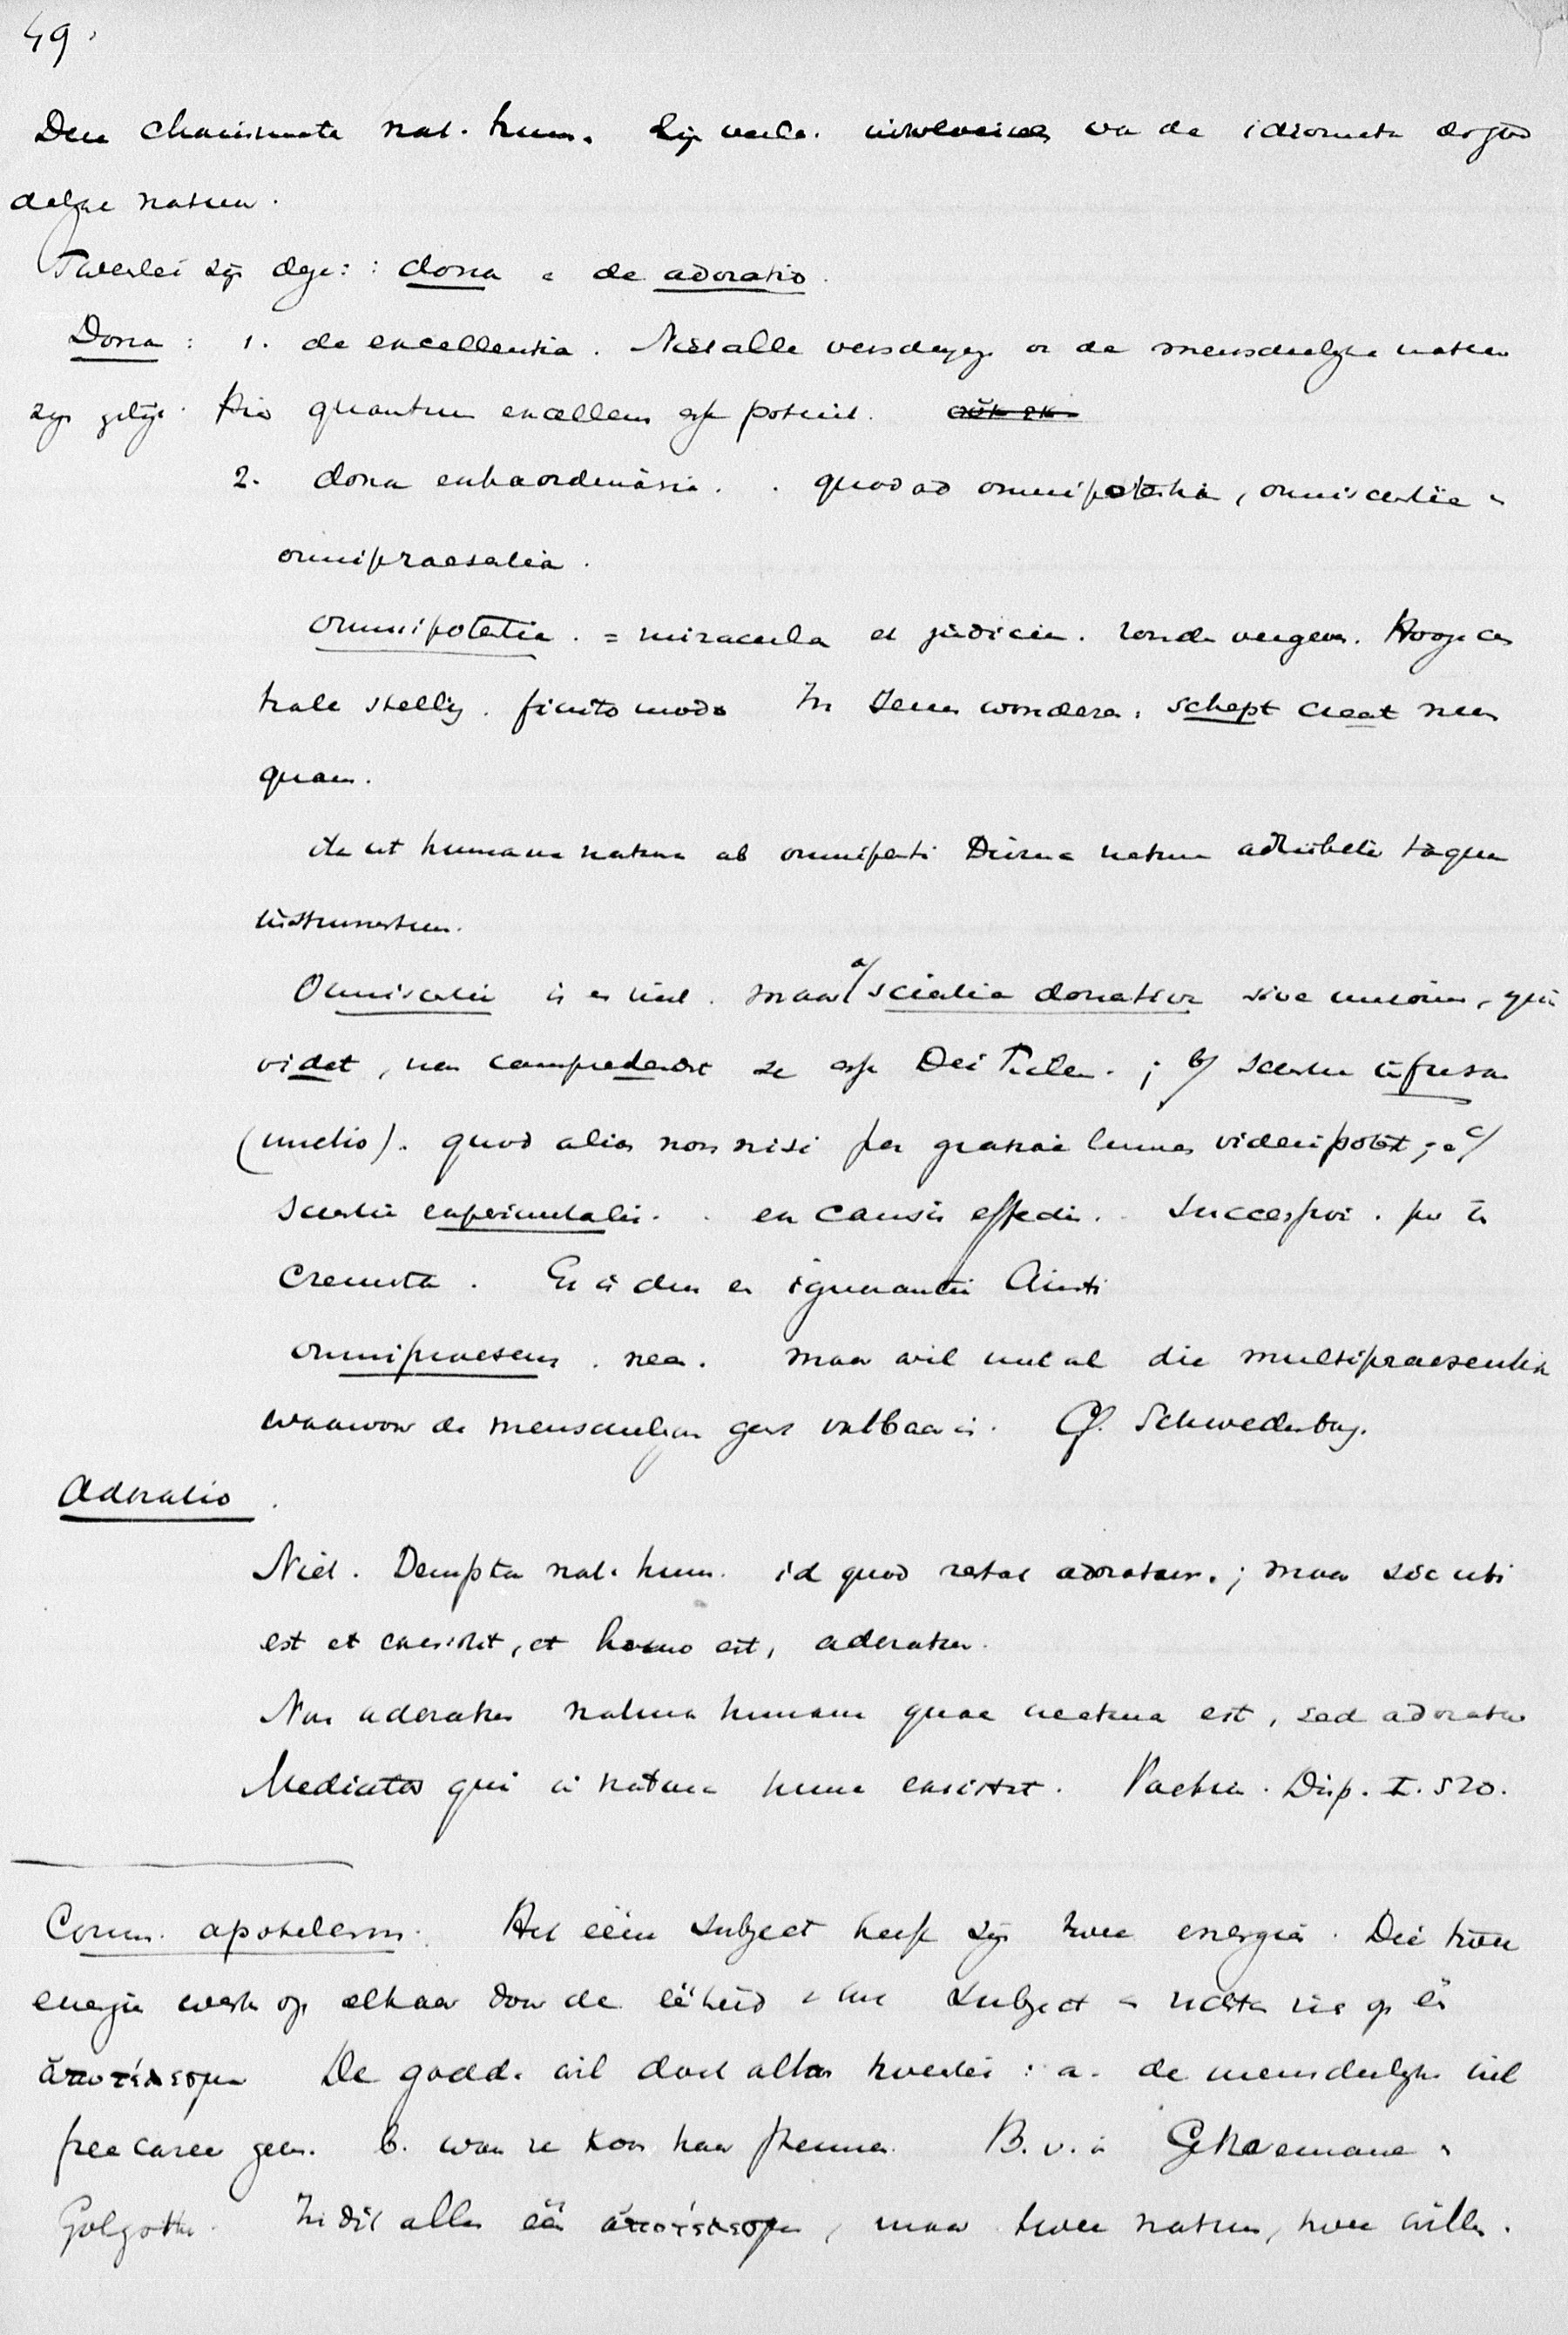 49.
Den charismata nat. hum. zijn verle. van de idiomata
natuur.
Tweelei zijn deze: : dona & de adoratio.
Dona : 1. de excellentia. Niet alle op de menschelijke natuur
zijn gelijk. Hic quantum excellens esse potuit.
2. dona extraordinaria. . quoad omnipotentia, omniscientia &
omnipraesentia.
omnipotentia. = miracula et judicia. zonde vergeven.
finito modo In zeven wonderen. schept creat nun
quam.
ita ut humana natura ab omnipotenti Divina natura adhibetur tamquam
instrumentum.
Omniscientia is er niet. maar a/ scientia donativa sive unionis, qua
videt, non comprehendit se esse Dei Filium. ; b/ scientia infusa
(unctio). quod alias non nisi per gratiae lumen videri potest ; & c/
scientia experimentalis. . ex causis effectu. . successive. per in
crementa. Er is dus een ignorantia Christi
omnipraesens. nee. maar wel die multipraesentia
waarvoor de menschelijke geest vatbaar is. Cf. Schwedenborg.
Adoratio.
Niet. Dempta nat. hum. id quod restat adoratur. ; maar sicuti
est et existit, et homo est, adoratur.
Non adoratur natura humana quae creatura est, sed adoratur
Mediator qui in natura humana existit. Voetius. Disp. I. 520.
Comm. apotelesm. Het ééne subject heeft zijn twee energieën. Die twee
energieën werken op elkaar door de eenheid van het subject & uit op één
ἀποτέλεσμα De godd. wil doet alles tweeërlei : a. de menschelijke wil
geen. b. waar ze kon haar B.v. in Gethsemane &
Golgotha. In dit alles één ἀποτέλεσμα, maar twee naturen, twee willen.